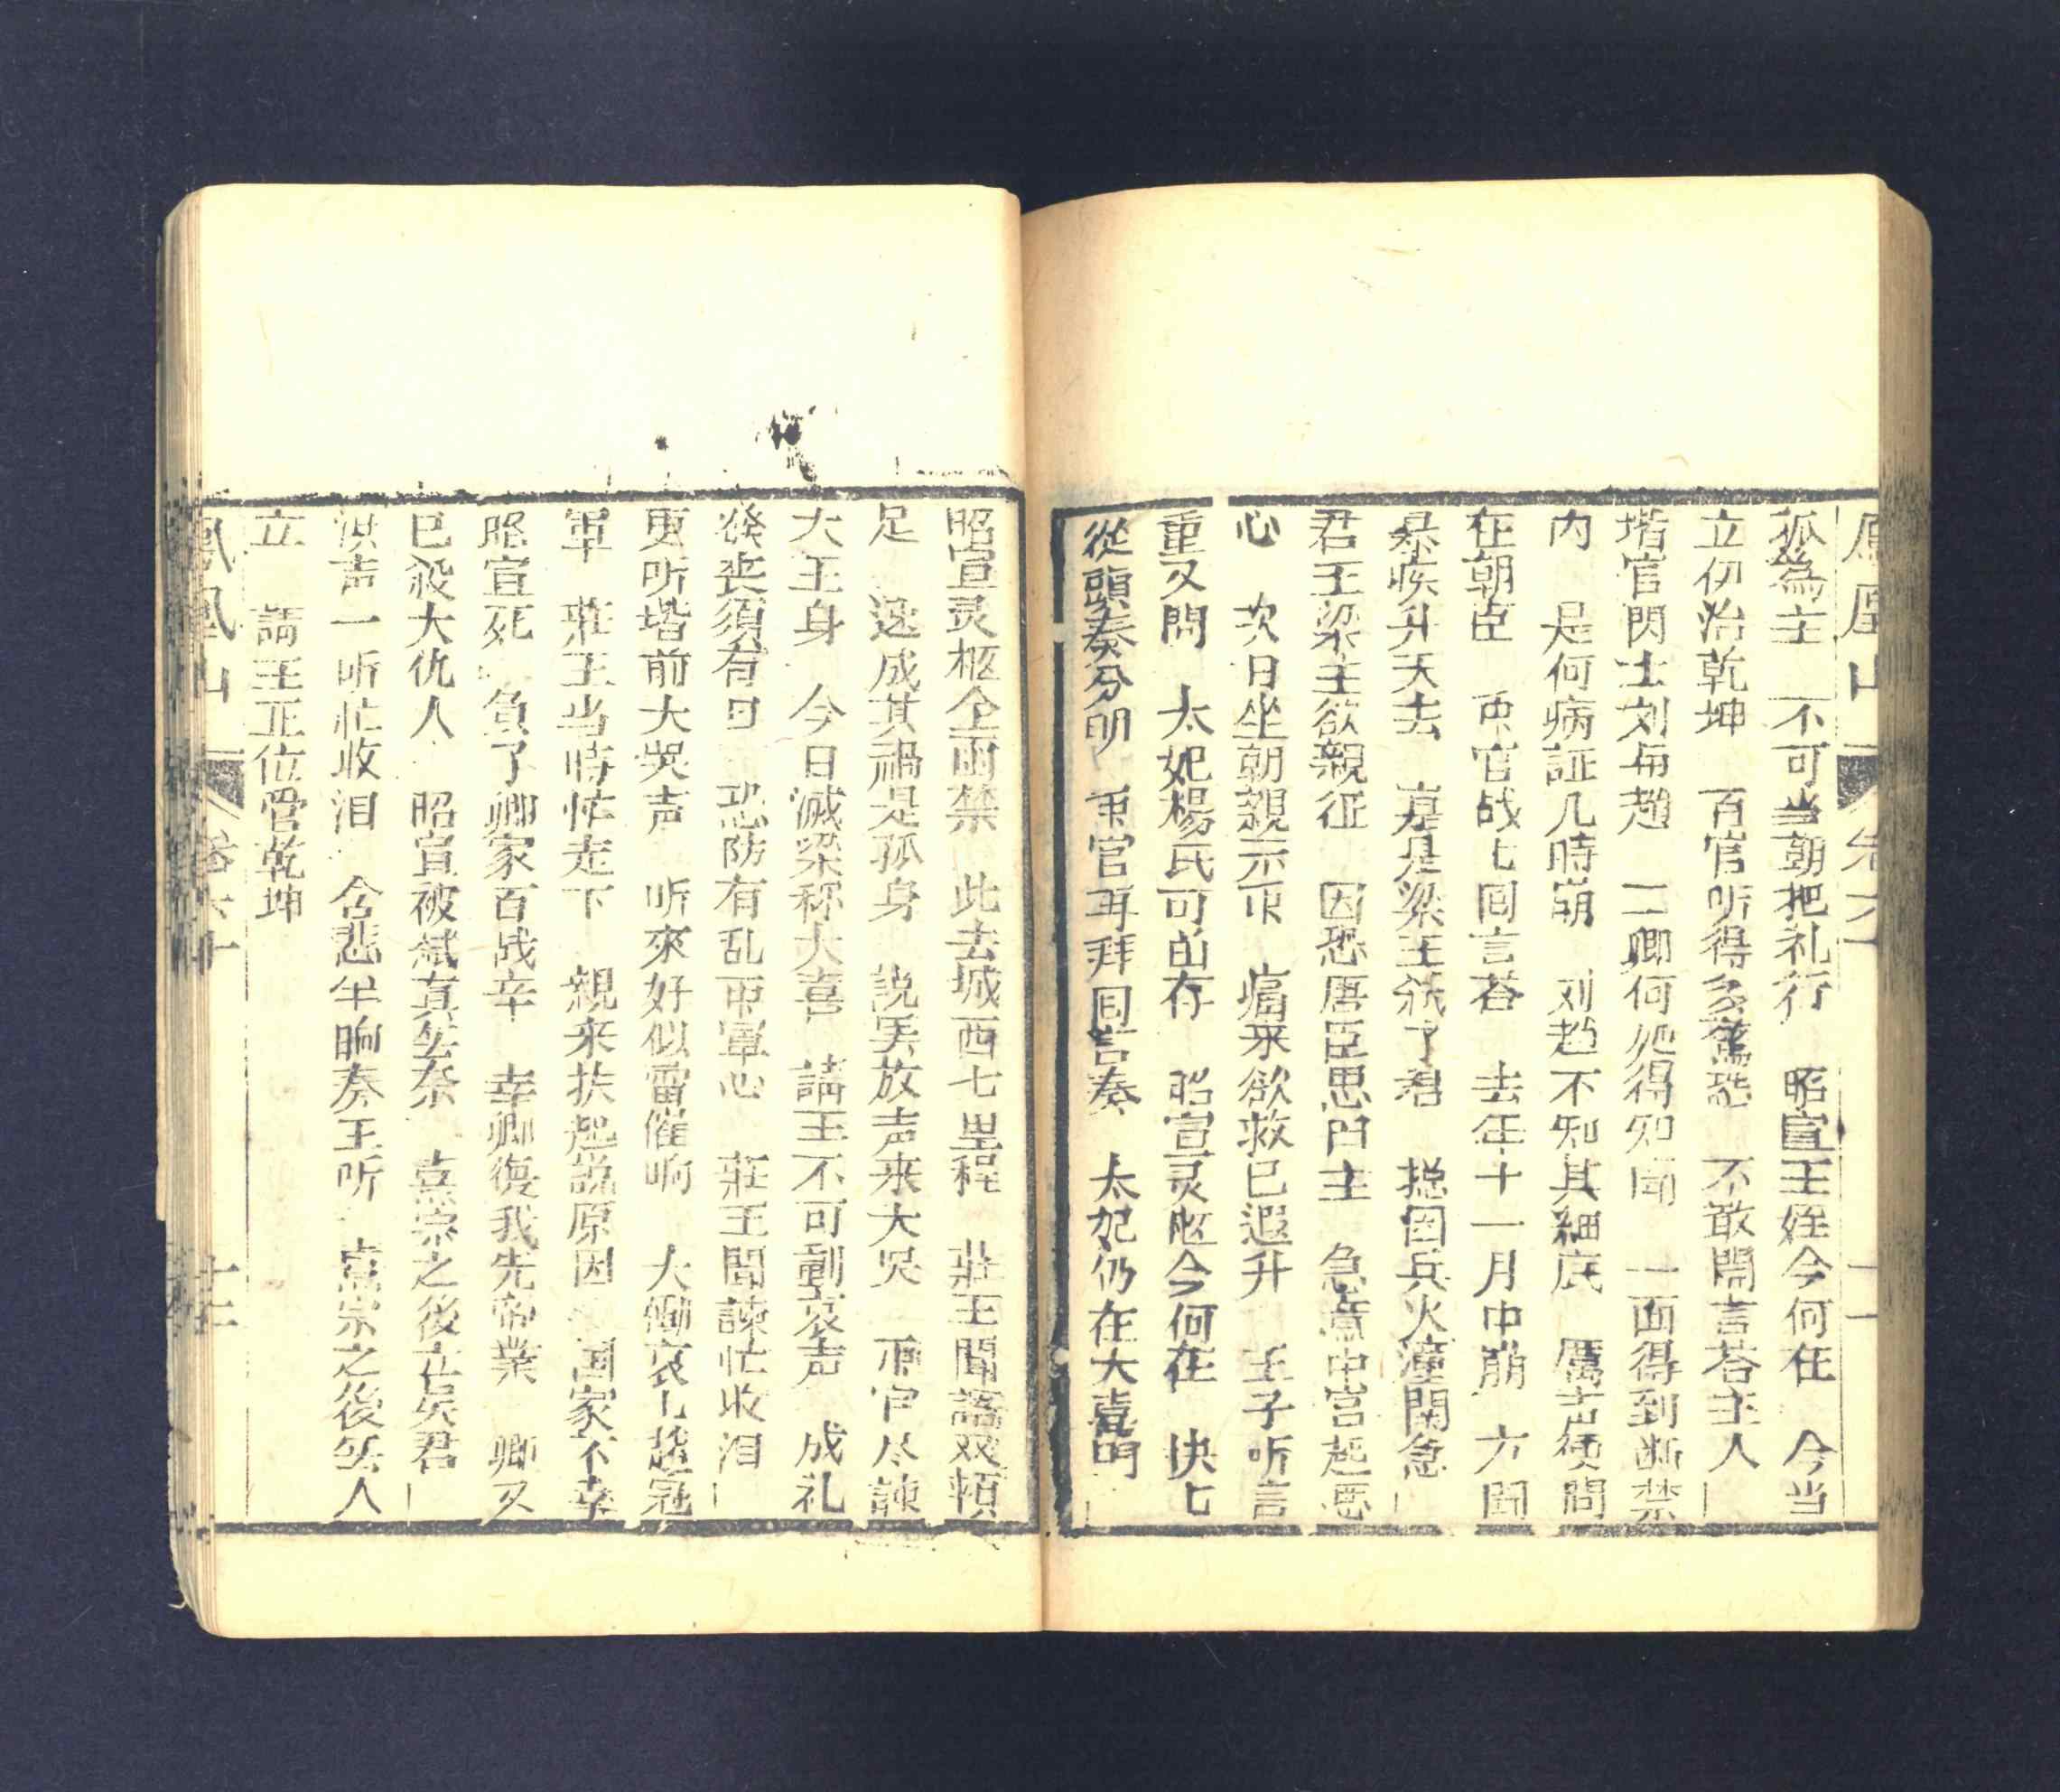 鳳凰山 卷六 十一
孤為主 不可当朝把礼行 昭宣王姪今何在 今当
立位治乾坤 百官听得多驚恐 不敢開言荅主人
堦官閃士刘與趙 二卿何処得知聞 一面得到断禁
内 是何病証几時崩 刘趙不知其細底 厲声便問
在朝臣 百官战七回言荅 去年十一月中崩 方聞
暴疾升天去 豈是梁王弒了君 総因兵火潼関急
君王梁主欲親征 因恐唐臣思旧主 急意中宮起恶
心 次日坐朝親示下 痛来欲救已遐升 王子听言
重又問 太妃楊氏可尚存 昭宣灵柩今何在 快七
從頭奏分明 百官再拜同言奏 太妃仍在大喜門
昭宣灵柩仝函禁 此去城西七里程 莊王聞語双頓
足 逆成其禍是孤身 說罢放声来大哭 百官尽諫
大王身 今日滅梁称大喜 請王不可動哀声 成礼
發丧須有日 恐防有乱百軍心 莊王聞諫忙收泪
更听堦前大哭声 听來好似雷催响 大慟哀七趙冠
軍 莊王当時忙走下 親来扶起説原因 国家不幸
昭宣死 負了卿家百战辛 幸卿復我先帝業 卿又
已殺大仇人 昭宣被弒真無奈 熹宗之後立矣君
洪声一听忙收泪 含悲半晌奏王听 熹宗之後無人
立 請王正位管乾坤
鳳凰山 卷六十 十二